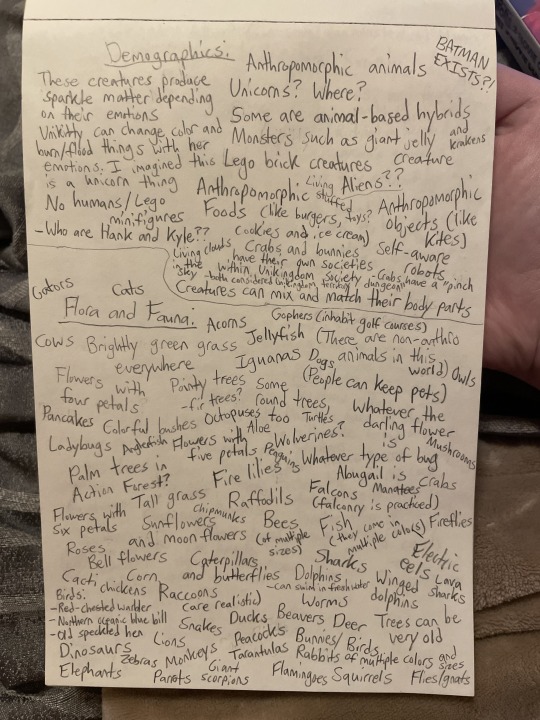 Demographics:
BATMAN
EXISTS?!
Anthropomorphic animals
These creatures produce
sparkle matter depending
on their emotions
Unikitty can change color and
burn/flood things with her
emotions. I imagined this
is a unicorn thing
No humans/Lego
minifigures
-Who are Hank and Kyle??
Unicorns? Where?
Some are animal-based hybrids
Monsters such as giant jelly and krakens
Lego brick creatures creature
Living Aliens??
Anthropomorphic stuffed toys?
Foods (like burgers,
cookies and ice cream)
Anthropomorphic
objects (like
kites)
Self-aware
robots
Living clouds
in the
sky
Crabs and bunnies
have their own societies
within Unikingdom society
-both considered Unikingdom territory
-Crabs have a "pinch
dungeon"
Creatures can mix and match their body parts
Gators
Cats
Flora and Fauna:
Acorns
Gophers (inhabit golf courses)
Cows
Brightly green grass
everywhere
Jellyfish
(There are non-anthro
animals in this
world)
Owls
Iguanas
Dogs
(People can keep pets)
Flowers with
four petals
Pointy trees
-fir trees?
Some
round trees
Pancakes
Colorful bushes
Octopuses too
Turtles
Whatever the
darling flower
is
Aloe
Ladybugs
Anglerfish
Flowers with
five petals
Wolverines?
Mushrooms
Penguins
Whatever type of bug
Abugail is
Crabs
Palm trees in
Action Forest?
Fire lilies
Falcons
(falconry is practiced)
Manatees
Flowers with
six petals
Tall grass
Raffodils
Chipmunks
Sunflowers
and moonflowers
Bees
(of multiple
sizes)
Fish
(they come in
multiple colors)
Fireflies
Roses
Bell flowers
Caterpillars
and butterflies
Sharks
Electric
eels
Lava
sharks
Cacti
Corn
Dolphins
-can swim in freshwater
Winged
dolphins
Birds:
-Red-chested warbler
-Northern oceanic blue bill
-Old speckled hen
chickens
Raccoons
care realistic)
Worms
Snakes
Ducks
Beavers
Deer
Trees can be
very old
Dinosaurs
Lions
Peacocks
Bunnies/
Rabbits
Birds
of multiple colors and
sizes
Zebras
Monkeys
Tarantulas
Elephants
Parrots
Giant
scorpions
Flamingoes
Squirrels
Flies/gnats